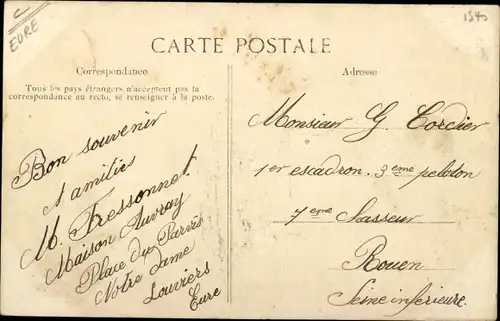 C
EURE
1540
CARTE POSTALE
Correspondance
Tous les pays étrangers n'acceptent pas la
correspondance au recto, se renseigner à la poste.
Bon souvenir
d amitiés
M. Fressonnet
Maison Auvray
Place du Parvis
Notre Dame
Louviers
Eure
Adresse
Monsieur G. Cordier
1er escadron. 3eme peloton
7eme Chasseur
Rouen
Seine inférieure.